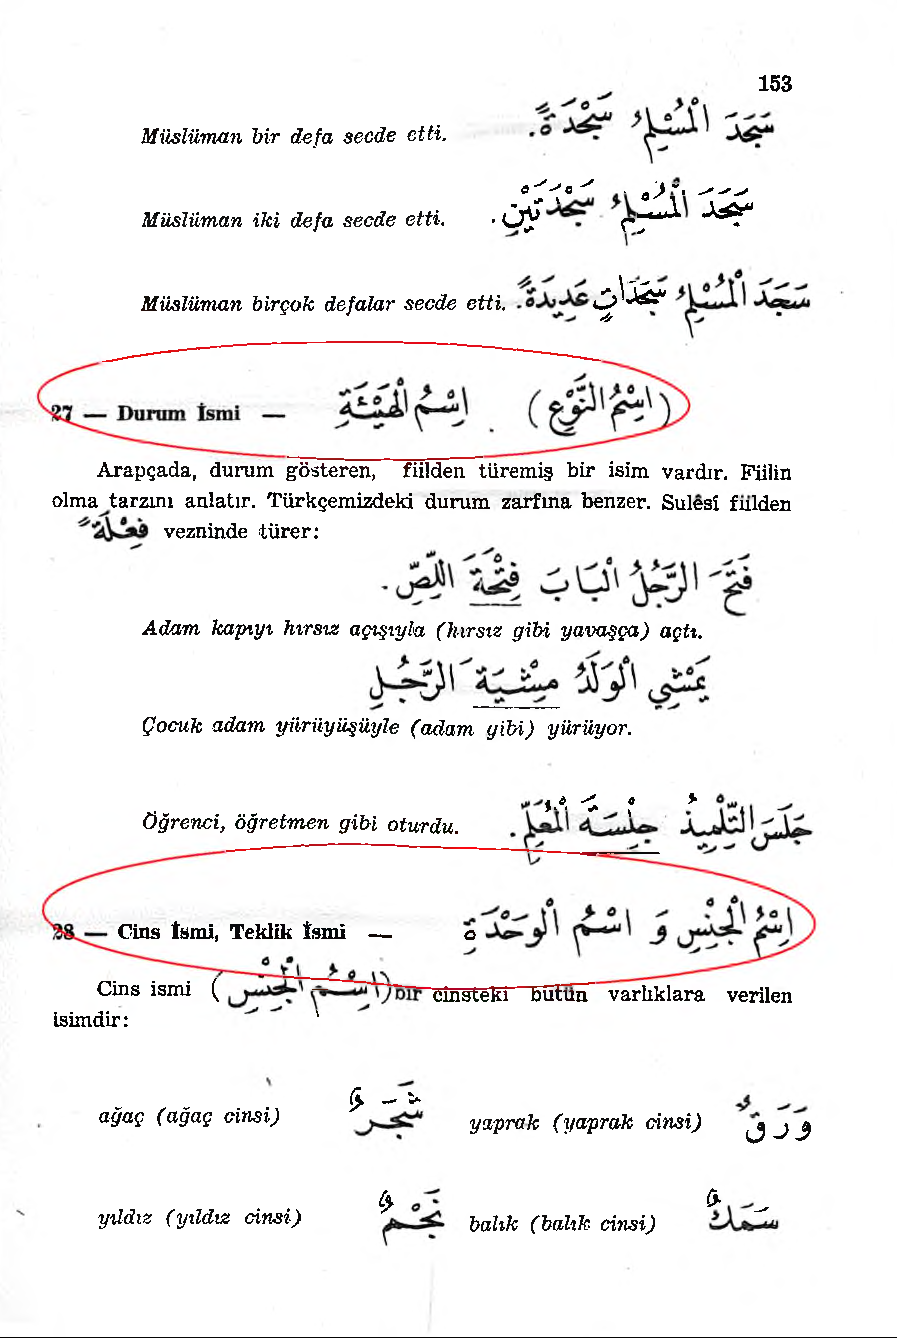 153
Müslüman bir defa secde etti. سَجَدَ الْمُسْلِمُ سَجْدَةً.
Müslüman iki defa secde etti. سَجَدَ الْمُسْلِمُ سَجْدَتَيْنِ.
Müslüman birçok defalar secde etti. سَجَدَ الْمُسْلِمُ سَجَدَاتٍ عَدِيدَةً.
27 — Durum İsmi — اِسْمُ الْهَيْئَةِ (اِسْمُ النَّوْعِ)
Arapçada, durum gösteren, fiilden türemiş bir isim vardır. Fiilin
olma tarzını anlatır. Türkçemizdeki durum zarfına benzer. Sulêsî fiilden
فِعْلَةً vezninde türer:
فَتَحَ الرَّجُلُ الْبَابَ فِتْحَةَ اللِّصِّ.
Adam kapıyı hırsız açışıyla (hırsız gibi yavaşça) açtı.
يَمْشِي الْوَلَدُ مِشْيَةَ الرَّجُلِ
Çocuk adam yürüyüşüyle (adam gibi) yürüyor.
Öğrenci, öğretmen gibi oturdu. جَلَسَ التِّلْمِيذُ جِلْسَةَ الْمُعَلِّمِ.
28 — Cins İsmi, Teklik İsmi — اِسْمُ الْجِنْسِ وَ اسْمُ الْوَحْدَةِ
Cins ismi (اِسْمُ الْجِنْسِ) bir cinsteki bütün varlıklara verilen
isimdir:
ağaç (ağaç cinsi) شَجَرٌ yaprak (yaprak cinsi) وَرَقٌ
yıldız (yıldız cinsi) نَجْمٌ balık (balık cinsi) سَمَكٌ